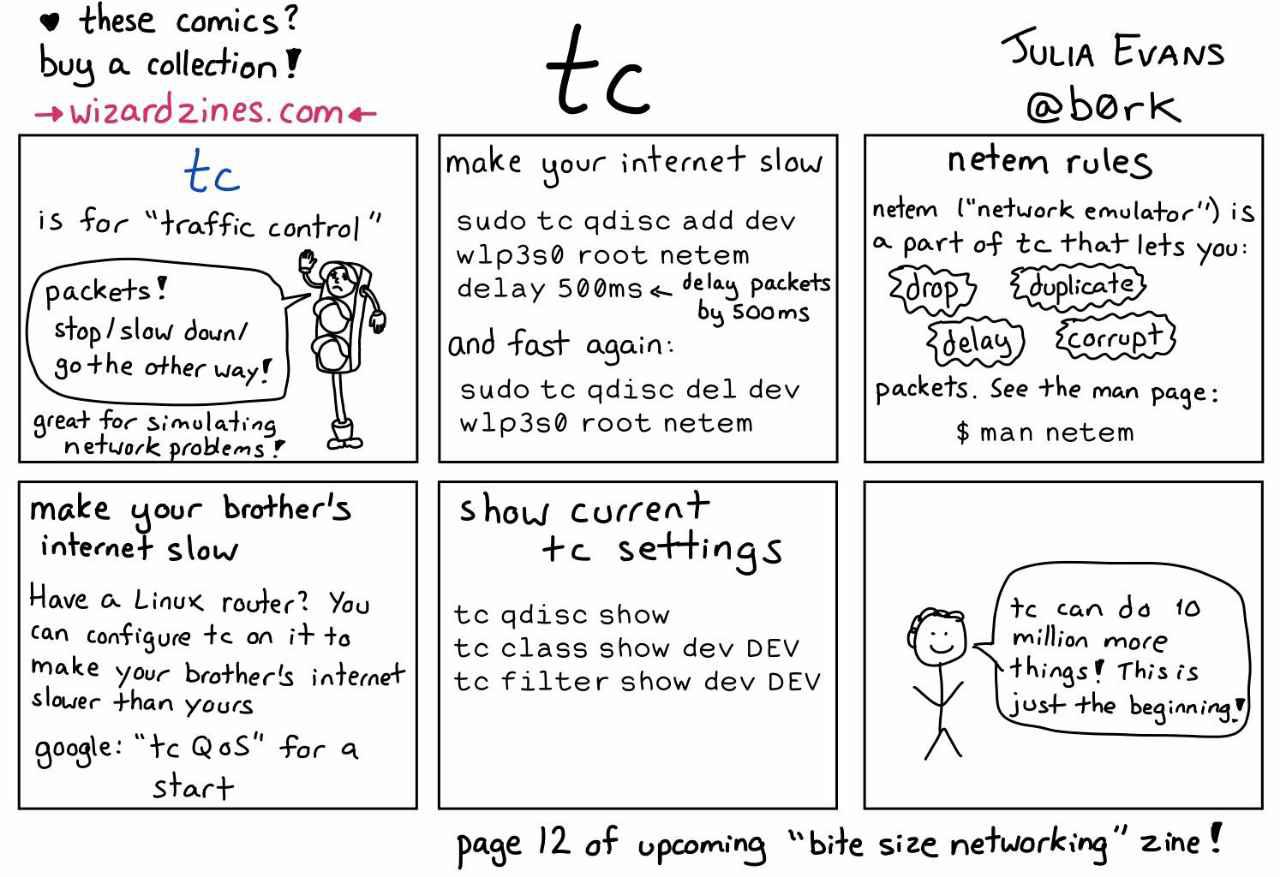 ♥ these comics?
buy a collection!
→wizardzines.com←
tc
JULIA EVANS
@b0rk
tc
is for "traffic control"
packets!
stop/slow down/
go the other way!
great for simulating
network problems!
make your internet slow
sudo tc qdisc add dev
wlp3s0 root netem
delay 500ms ← delay packets
by 500ms
and fast again:
sudo tc qdisc del dev
wlp3s0 root netem
netem rules
netem ("network emulator") is
a part of tc that lets you:
drop duplicate
delay corrupt
packets. See the man page:
$ man netem
make your brother's
internet slow
Have a Linux router? You
can configure tc on it to
make your brother's internet
slower than yours
google: "tc QoS" for a
start
show current
tc settings
tc qdisc show
tc class show dev DEV
tc filter show dev DEV
tc can do 10
million more
things! This is
just the beginning!
page 12 of upcoming "bite size networking" zine!